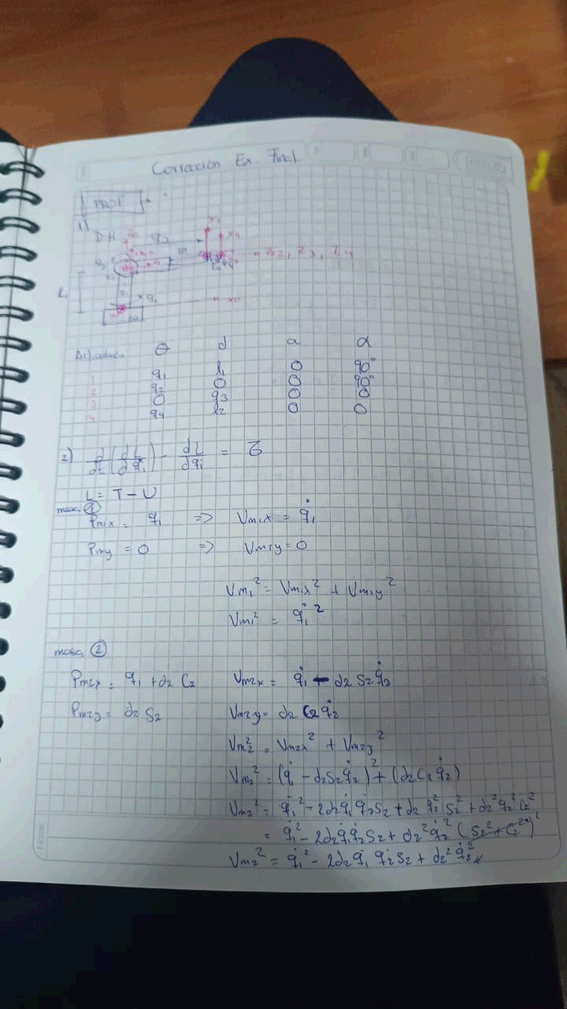 Correccion Ex. Final
PROF
1)
D.H
q2
z2, z3, z4
q1
x0
Articulacion θ d a α
1 q1 l1 0 90°
2 q2 0 0 90°
3 0 q3 0 0
4 q4 l2 0 0
2) d/dt (dL/dq̇i) - dL/dqi = τ
L = T - U
masa ①
Pm1x = q1 => Vm1x = q̇1
Pm1y = 0 => Vm1y = 0
Vm1² = Vm1x² + Vm1y²
Vm1² = q̇1²
masa ②
Pm2x = q1 + d2 C2 Vm2x = q̇1 - d2 S2 q̇2
Pm2y = d2 S2 Vm2y = d2 C2 q̇2
Vm2² = Vm2x² + Vm2y²
Vm2² = (q̇1 - d2 S2 q̇2)² + (d2 C2 q̇2)
Vm2² = q̇1² - 2d2 q̇1 q̇2 S2 + d2 q̇2² S2² + d2² q̇2² C2²
= q̇1² - 2d2 q̇1 q̇2 S2 + d2² q̇2² (S2² + C2²)¹
Vm2² = q̇1² - 2d2 q̇1 q̇2 S2 + d2² q̇2²